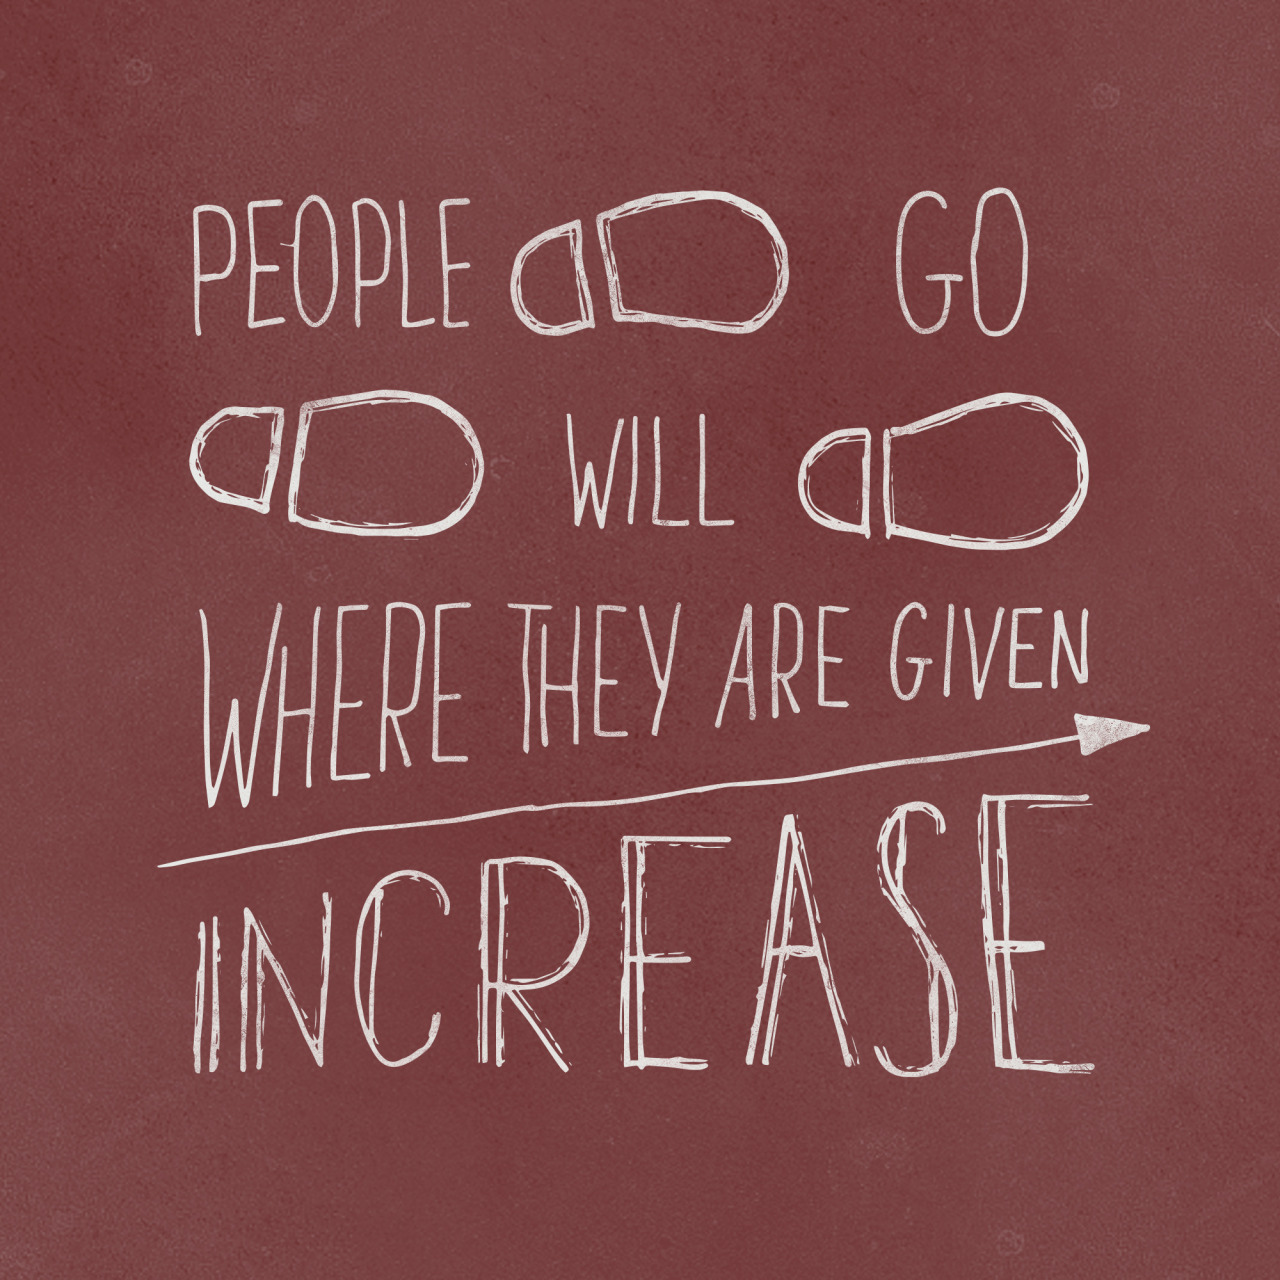 PEOPLE GO
WILL
WHERE THEY ARE GIVEN
INCREASE